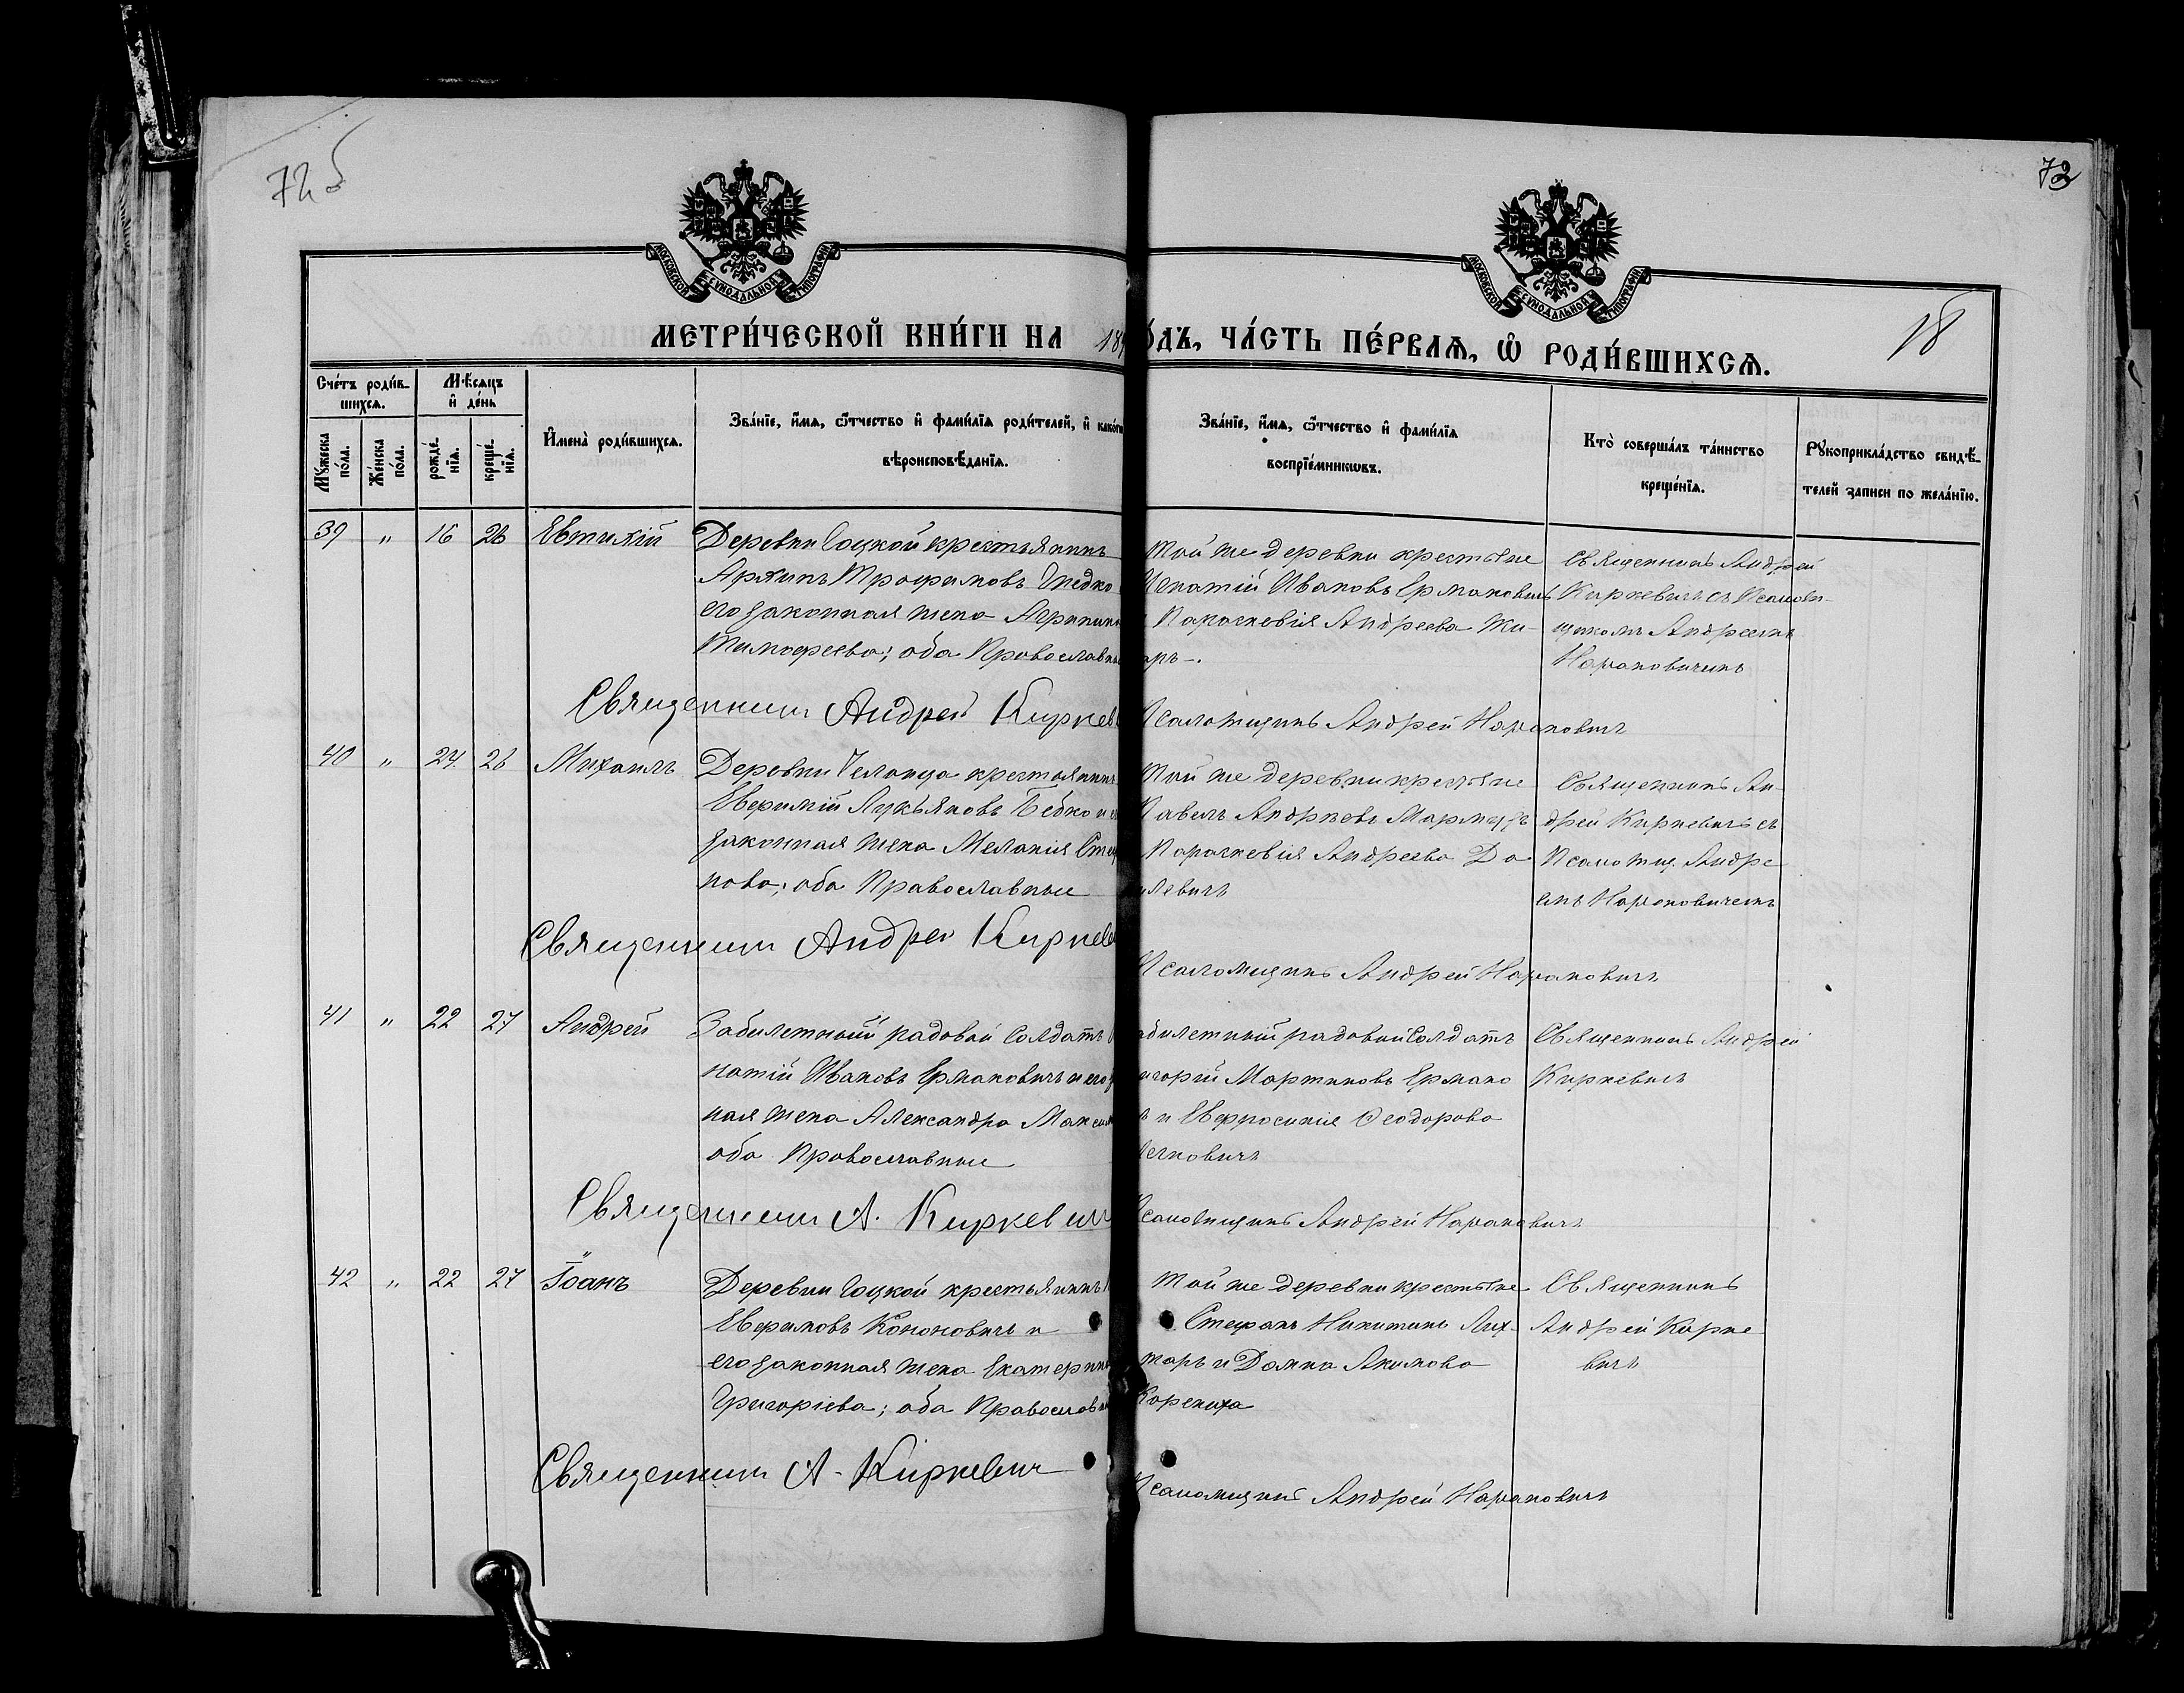 72 б
72
МОСКОВСКОЙ СУНОДАЛЬНОЙ ТИПОГРАФІИ
МОСКОВСКОЙ СУНОДАЛЬНОЙ ТИПОГРАФІИ
МЕТРИ́ЧЕСКОЙ КНИ́ГИ НА 189
О́ДЪ, ЧА́СТЬ ПЕ́РВАѦ, Ѡ҆ РОДИ́ВШИХСѦ.
18
Сче́тъ роди́в-
шихсѧ.
Мѣ́сѧцъ
и҆ де́нь
Мꙋ́жеска
по́ла.
Же́нска
по́ла.
рожде́-
нїѧ.
креще́-
нїѧ.
И҆мена̀ роди́вшихсѧ.
Зва́нїе, и҆́мѧ, ѻ҆́тчество и҆ фами́лїѧ роди́телей, и҆ како́гѡ
вѣроисповѣ́данїѧ.
Зва́нїе, и҆́мѧ, ѻ҆́тчество и҆ фами́лїѧ
воспрїе́мникѡвъ.
Кто̀ соверша́лъ та́инство
креще́нїѧ.
Рꙋкоприкла́дство свидѣ́-
телей записи по жела́нїю.
39 " 16 26 Евтихій
Деревни Соцкой крестьянинъ
Архипъ Трофимовъ
его законная жена Агрипин
Тимофеева; оба Православны
Той же деревни крестьяне
Игнатій Ивановъ Ермаковичъ
Параскевія Андреева Жи-
аръ-.
Священникъ Андрей
Киркевичъ съ Псаломъ-
щикомъ Андреемъ
Нарановичемъ
Священникъ Андрей Киркев
Псаломщикъ Андрей Нарановичъ
40 " 24 26 Михаилъ
Деревни крестьянинъ
Евфимій Лукьяновъ Бебко и е
законная жена Меланія Сте
нова; оба Православные
Той же деревни крестьяне
Павелъ Андреевъ
Параскевія Андреева Да
илевичъ
Священникъ Ан-
дрей Киркевичъ съ
Псаломщ. Андре
емъ Нарановичемъ
Священникъ Андрей Киркев
Псаломщикъ Андрей Нарановичъ
41 " 22 27 Андрей
Забилетный рядовой солдатъ
натій Ивановъ Ермаковичъ и его з
ная жена Александра Максим
оба Православные
абилетный рядовой солдатъ
игорій Мартиновъ Ермако
ъ и Евфросинія Ѳеодорова
Священникъ Андрей
Киркевичъ
Священникъ А. Киркевич
Псаломщикъ Андрей Нарановичъ
42 " 22 27 Іоанъ
Деревни Соцкой крестьянинъ
Евфимовъ Кононовичъ и
его законная жена Екатерин
Григоріева; оба Православн
Той же деревни крестьяне
Стефанъ Никитинъ Лих-
таръ и Домна Акимова
Корениха
Священникъ
Андрей Кирке
вичъ
Священникъ А. Киркевич
Псаломщикъ Андрей Нарановичъ